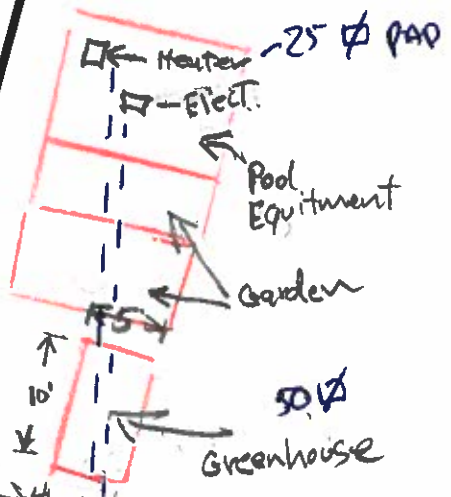 Heater 25 ⌀ PAD
Elect.
Pool
Equitment
Garden
5
10'
50 ⌀
Greenhouse